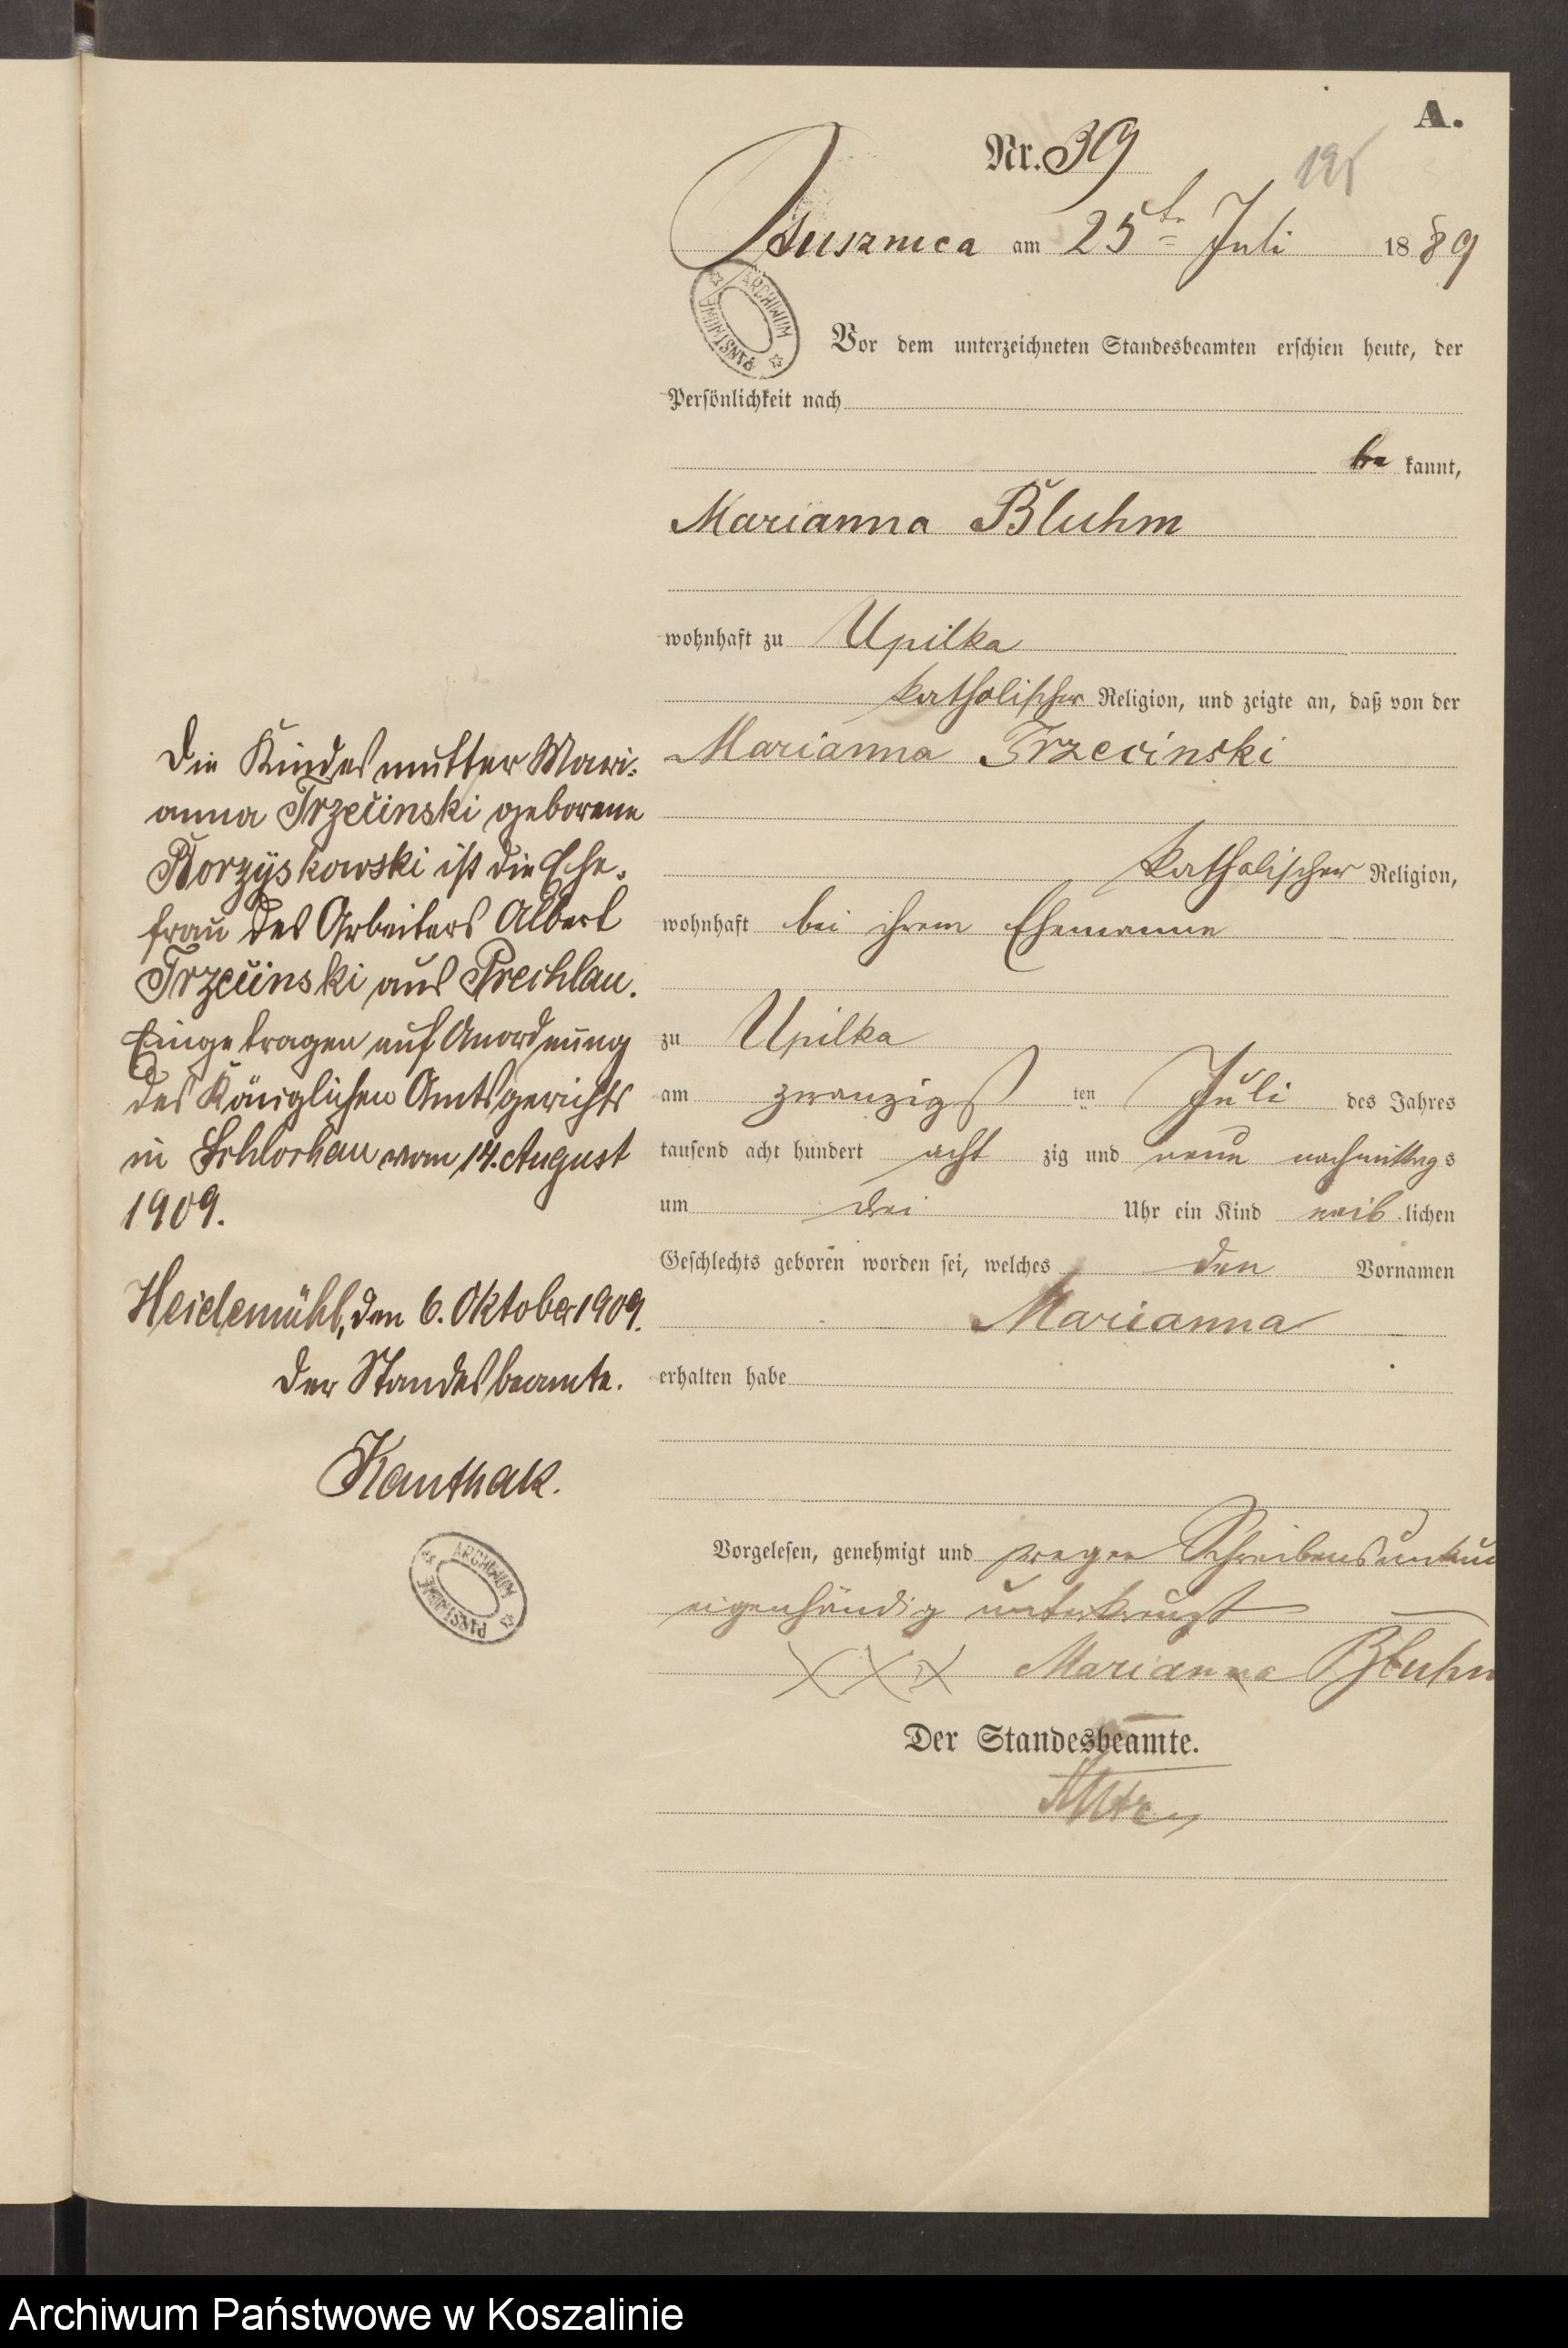 A.
Nr. 39
195
am 25ten Juli 1889
ARCHIWUM PAŃSTWOWE
Vor dem unterzeichneten Standesbeamten erschien heute, der
Persönlichkeit nach
be kannt,
Marianna Bluhm
wohnhaft zu Upilka
katholischer Religion, und zeigte an, daß von der
Marianna Trzecinski
katholischer Religion,
wohnhaft bei ihrem Ehemanne
zu Upilka
am zwanzigsten Juli des Jahres
tausend acht hundert acht zig und neun nachmittags
um drei Uhr ein Kind weib lichen
Geschlechts geboren worden sei, welches den Vornamen
Marianna
erhalten habe
Vorgelesen, genehmigt und wegen Schreibensunkun
eigenhändig unterkreuzt
XXX Marianna Bluhm
Der Standesbeamte.
Die Kindesmutter Mari-
anna Trzecinski geborene
Borzyskowski ist die Ehe-
frau des Arbeiters Albert
Trzecinski aus Prechlau.
Eingetragen auf Anordnung
des Königlichen Amtsgerichts
in Schlochau vom 14. August
1909.
Heidemühl, den 6. Oktober 1909.
Der Standesbeamte.
Kanthak.
ARCHIWUM PAŃSTWOWE
Archiwum Państwowe w Koszalinie